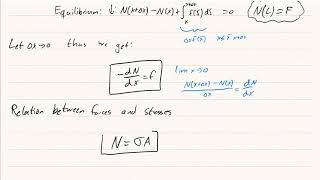 Equilibrium: ↓: N(x+Δx) - N(x) + ∫ₓˣ⁺ᐃˣ f(ξ)dξ = 0 N(L) = F
Δx f(ξ) x ≤ ξ ≤ x+Δx
Let Δx→0 thus we get:
-dN/dx = f
lim x→0
N(x+Δx) - N(x) / Δx = dN/dx
Relation between forces and stresses
N = σA